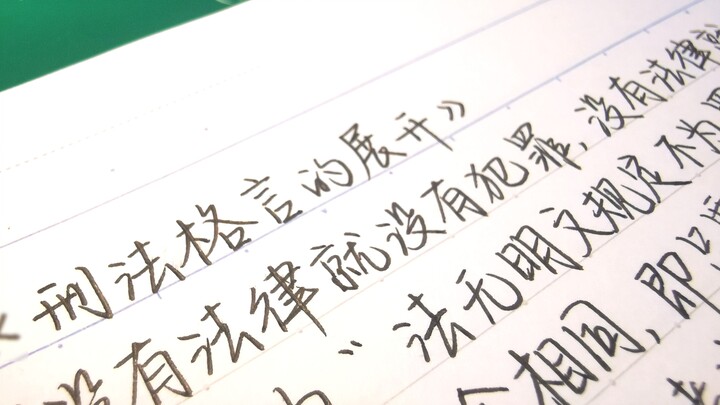 刑法格言的展开》
没有法律就没有犯罪,没有法律就
"法无明文规定不为罪
相同,即